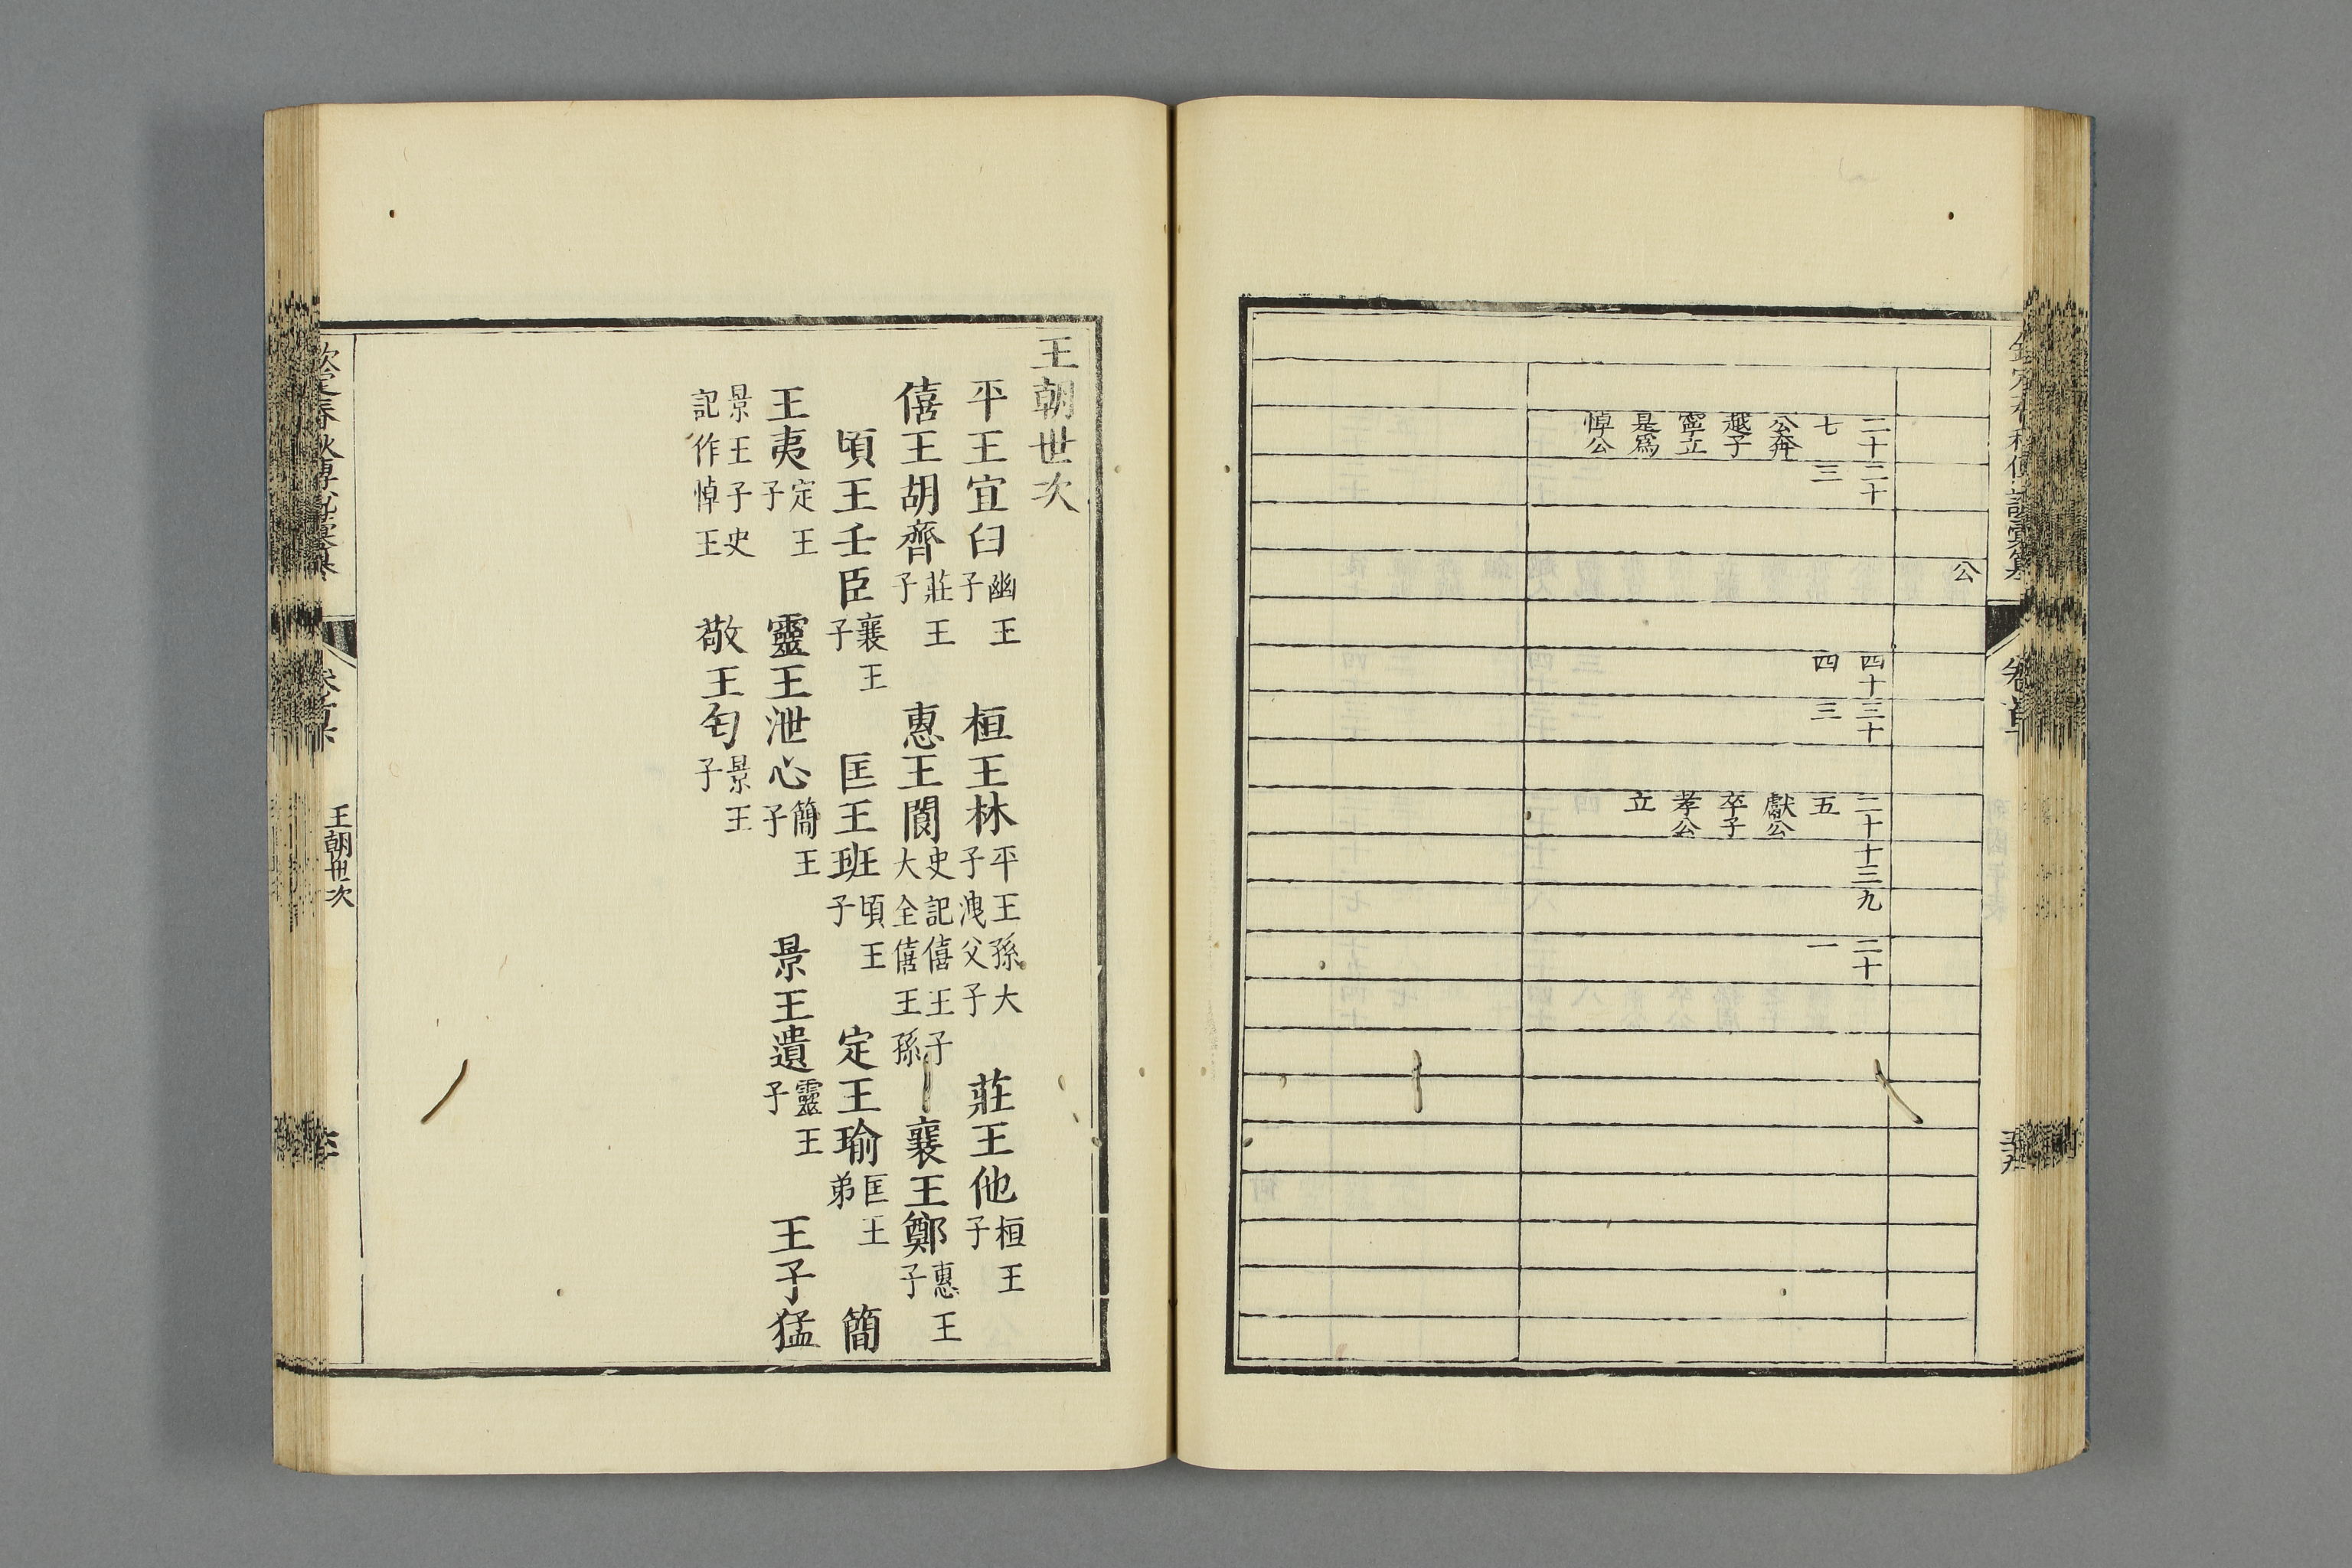 公
二十二十
七三
公奔
越子
寧立
是爲
悼公
四十三十
四三
二十十三九
五
獻公
卒子
孝公
立
二十
一
王朝世次
平王宜臼幽王子 桓王林平王孫大子洩父子 莊王他桓王子
僖王胡齊莊王子 惠王閬史記僖王子大全僖王孫 襄王鄭惠王子
頃王壬臣襄王子 匡王班頃王子 定王瑜匡王弟 簡
王夷定王子 靈王泄心簡王子 景王遺靈王子 王子猛
景王子史記作悼王 敬王匄景王子
王朝世次